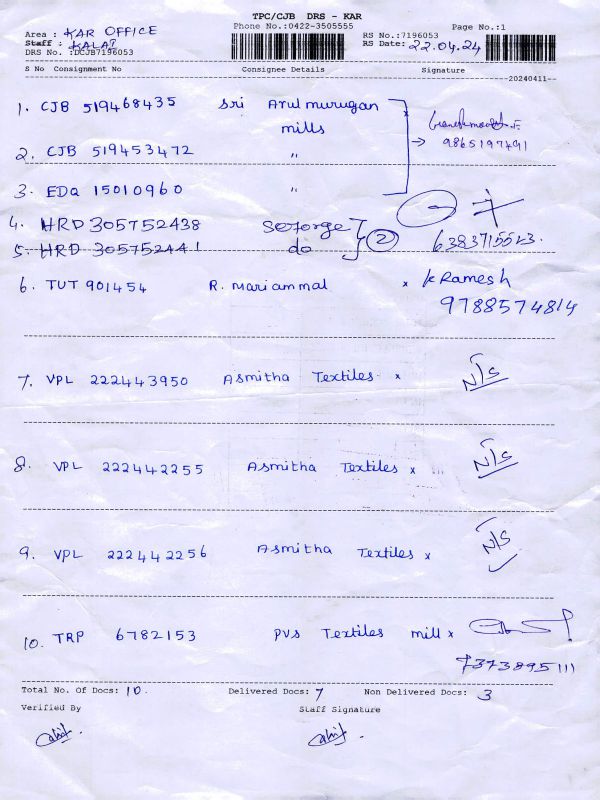 TPC/CJB DRS - KAR
Phone No.:0422-3505555 Page No.:1
Area : KAR OFFICE RS No.:7196053
Staff : KALAI RS Date: 22.04.24
DRS No. :DCJB7196053
S No Consignment No Consignee Details Signature
--20240411--
1. CJB 519468435 Sri Arul murugan
mills
9865197491
2. CJB 519453472 "
3. EDQ 15010960 "
4. HRD 305752438 Seforge
5. HRD 305752441 do 2
6. TUT 901454 R. Mariammal x K Ramesh
9788574814
7. VPL 222443950 Asmitha Textiles x N/S
8. VPL 222442255 Asmitha Textiles x N/S
9. VPL 222442256 Asmitha Textiles x N/S
10. TRP 6782153 PVS Textiles mill x
7373895111
Total No. Of Docs: 10. Delivered Docs: 7 Non Delivered Docs: 3
Verified By Staff Signature